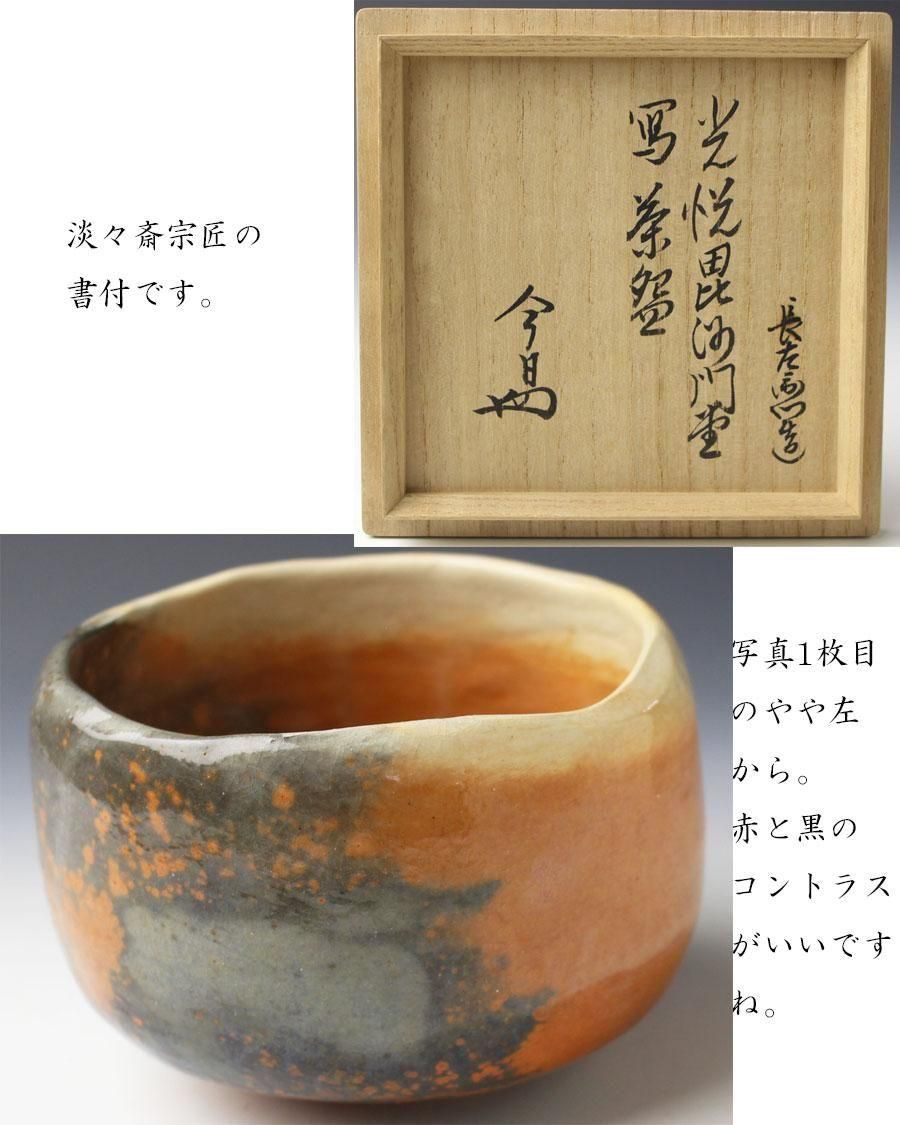 淡々斎宗匠の
書付です。
長左衛門造
光悦毘沙門堂
写 茶盌
今日
写真1枚目
のやや左
から。
赤と黒の
コントラス
がいいです
ね。